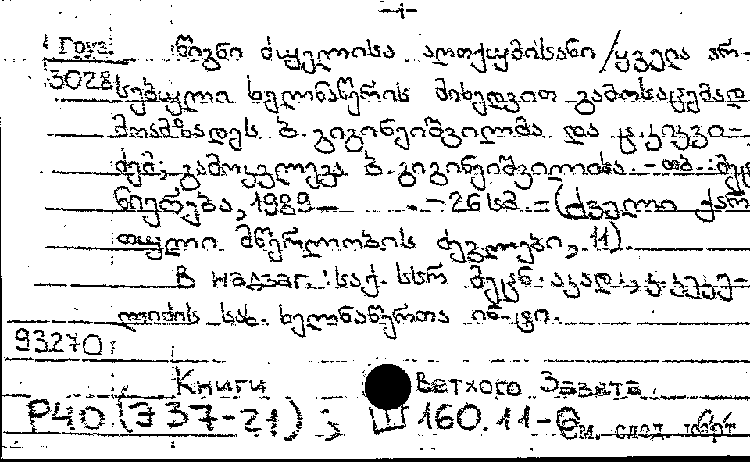 -1-
Груз. წიგნი ძველისა აღთქუმისანი / ყველა არ-
3028 სებული ხელნაწერის მიხედვით გამოსაცემად
მოამზადეს ბ. გიგინეიშვილმა და ც. კიკვი-
ძემ; გამოკვლევა ბ. გიგინეიშვილისა. - თბ.: მეც
ნიერება, 1989 - . - 26 სმ. - (ძველი ქარ
თული მწერლობის ძეგლები, 11).
В надзаг.: საქ. სსრ მეცნ. აკად., კ. კეკე-
ლიძის სახ. ხელნაწერთა ინ-ტი.
93270
Книги Ветхого Завета
Р40 (737-21); Ш160.11-6
См. след. карт